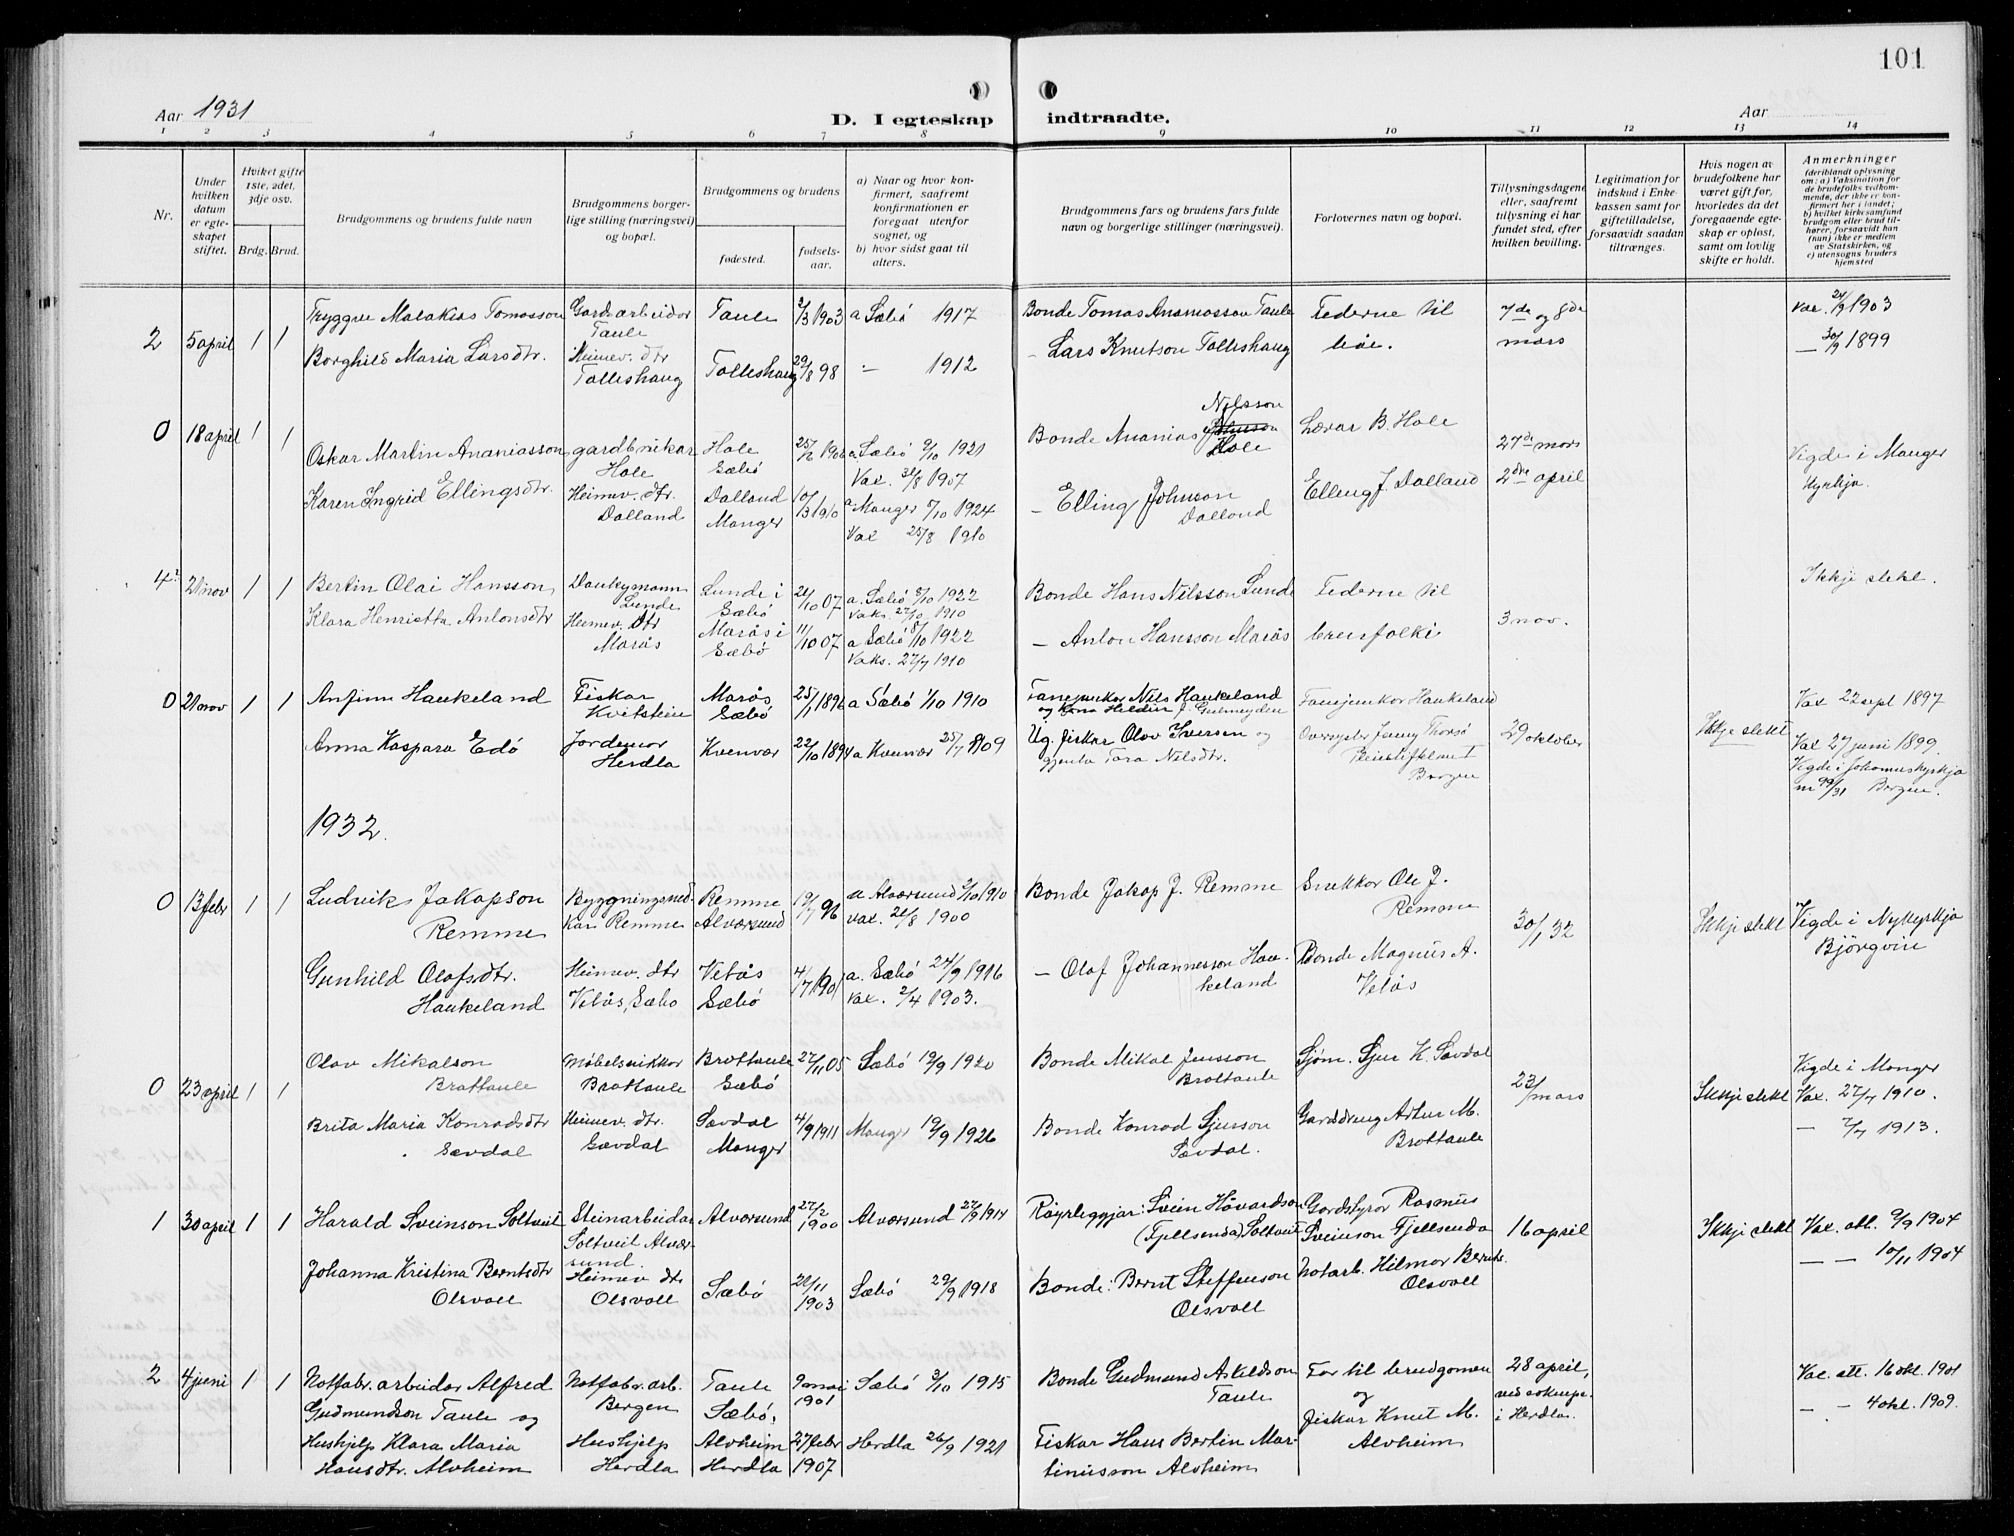 101
Aar 1931
D. I egteskap indtraadte.
Aar
1 2 3 4 5 6 7 8 9 10 11 12 13 14
Nr.
Under hvilken datum er egteskapet stiftet.
Hviket gifte 1ste, 2det, 3dje osv.
Brdg. Brud.
Brudgommens og brudens fulde navn
Brudgommens borgerlige stilling (næringsvei) og bopæl.
Brudgommens og brudens
fødested.
fødselsaar.
a) Naar og hvor konfirmert, saafremt konfirmationen er foregaat utenfor sognet, og
b) hvor sidst gaat til alters.
Brudgommens fars og brudens fars fulde navn og borgerlige stillinger (næringsvei).
Forlovernes navn og bopæl.
Tillysningsdagene eller, saafremt tillysning ei har fundet sted, efter hvilken bevilling.
Legitimation for indskud i Enkekassen samt for giftetilladelse, forsaavidt saadan tiltrænges.
Hvis nogen av brudefolkene har været gift før, hvorledes da det foregaaende egteskap er opløst, samt om lovlig skifte er holdt.
Anmerkninger
(deriblandt oplysning om: a) Vaksination for de brudefolks vedkommende, der ikke er konfirmert her i landet; b) hvilket kirkesamfund brudgom eller brud tilhører, forsaavidt han (hun) ikke er medlem av Statskirken, og c) utensogns bruders hjemsted
2 5 april 1 1
Tryggve Malakias Tomasson
Gardsarbeidar Taule
Taule
2/3 1903
a Sæbø 1917
Bonde Tomas Ananiasson Taule
Federne til
7de og 8de mars
Vax. 24/9 1903
Borghild Maria Larsdtr.
Heimev. dtr Tolleshaug
Tolleshaug
29/8 98
— 1912
— Lars Knutson Tolleshaug
bæe.
— 30/9 1899
0 18 april 1 1
Oskar Martin Ananiasson
gardbrukar Hole
Hole Sæbø
a Sæbø 9/10 1921
Vax. 1907
Bonde Ananias Nilsson Hole
Lærar B. Hole
27de mars
Vigde i Manger kyrkja.
Karen Ingrid Ellingsdtr.
Heimev. dtr. Dalland
Dalland Manger
10/3 1910
a Manger 5/10 1924
Vax 25/8 1910
— Elling Johnson Dalland
Elling J. Dalland
2dre april
4 21 nov 1 1
Bertin Olai Hansson
Lunde
Lunde i Sæbø
21/10 07
a. Sæbø 8/10 1922
Vaks. 27/10 1910
Bonde Hans Nilsson Lunde
Federne til
3 nov.
Ikkje slekt.
Klara Henrietta Antonsdtr
Heimev. dtr Marås
Marås i Sæbø
11/10 07
a Sæbø 8/10 1922
Vaks. 27/7 1910
— Anton Hansson Marås
brurfolki
0 21 nov 1 1
Anfinn Haukeland
Fiskar Kvitstein
Marås Sæbø
25/1 1896
a Sæbø 1/10 1910
Fanejunker Nils Haukeland
Fanejunkar Haukeland
29 oktober
Ikkje slekt
Vax 22 sept 1897
Anna Kaspara Edø
Jordemor Herdla
Kvenvær
22/10 1894
a Kvenvær 25/7 1909
Ug. fiskar Olav Iversen og gjenta Tara Nilsdtr.
Oversyster Jenny Thorsø
Bergen
Vax 27 juni 1899.
Vigde i Johanneskyrkja nr 99/31 Bergen.
1932.
0 13 febr 1 1
Ludvik Jakopson Remme
Byggningssnedkar Remme
Remme Alværsund
19/7 96
a Alværsund 2/10 1910
vax. 21/8 1900
Bonde Jakop J. Remme
Snekkar Ole J. Remme
30/1 32
Ikkje slekt
Vigde i Nykyrkja Bjørgvin
Gunhild Olafsdtr. Haukeland
Heimev. dtr Velås, Sæbø
Velås Sæbø
4/7 1901
a. Sæbø 24/9 1916
Vax. 2/4 1903.
— Olaf Johannesson Haukeland
Bonde Magnus A. Velås
0 23 april 1 1
Olav Mikalson Brattaule
Møbelsnikkar Brattaule
Brattaule Sæbø
27/11 05
Sæbø 19/9 1920
Bonde Mikal Jensson Brattaule
Sjøm. Sjur K. Sævdal
23/mars
Ikkje slekt
Vigde i Manger
Vax. 27/7 1910.
Brita Maria Konradsdtr Sævdal
Heimev. dtr. Sævdal
Sævdal Manger
4/9 1911
Manger 19/9 1926
Bonde Konrad Sjursson Sævdal.
Garddreng Artur M. Brattaule
— 2/7 1913.
1 30 april 1 1
Harald Sveinson Soltveit
Steinarbeidar Soltveit Alværsund.
Alværsund
27/2 1900
Alværsund 27/9 1914
Røyrleggjar: Svein Håvardson (Fjellsenda) Soltveit
Gardstyrar Rasmus Sveinson Fjellsenda
16 april
Ikkje slekt
Vax. att. 9/9 1904
Johanna Kristina Berntsdtr Olsvoll
Heimev dtr Olsvoll
Sæbø
21/11 1903
Sæbø 29/9 1918
Bonde: Bernt Steffenson Olsvoll
Notarb. Hilmar Bernts. Olsvoll
— — 10/11 1904
2 4 juni 1 1
Notfabr. arbeidar Alfred Gudmundson Taule og
Notfabr. arb. Bergen
Taule Sæbø,
9 mai 1901
Sæbø 3/10 1915
Bonde Gudmund Askeldson Taule
Far til brudgomen og
28 april, ved soknepr. i Herdla.
Vac. att. 16 okt. 1901
Hushjelp Klara Maria Hansdtr. Alvheim
Hushjelp Herdla
Alvheim Herdla
27 febr 1907
Herdla 26/9 1921
Fiskar Hans Bertin Martinusson Alvheim
fiskar Knut M. Alvheim
— — 4 okt. 1909.